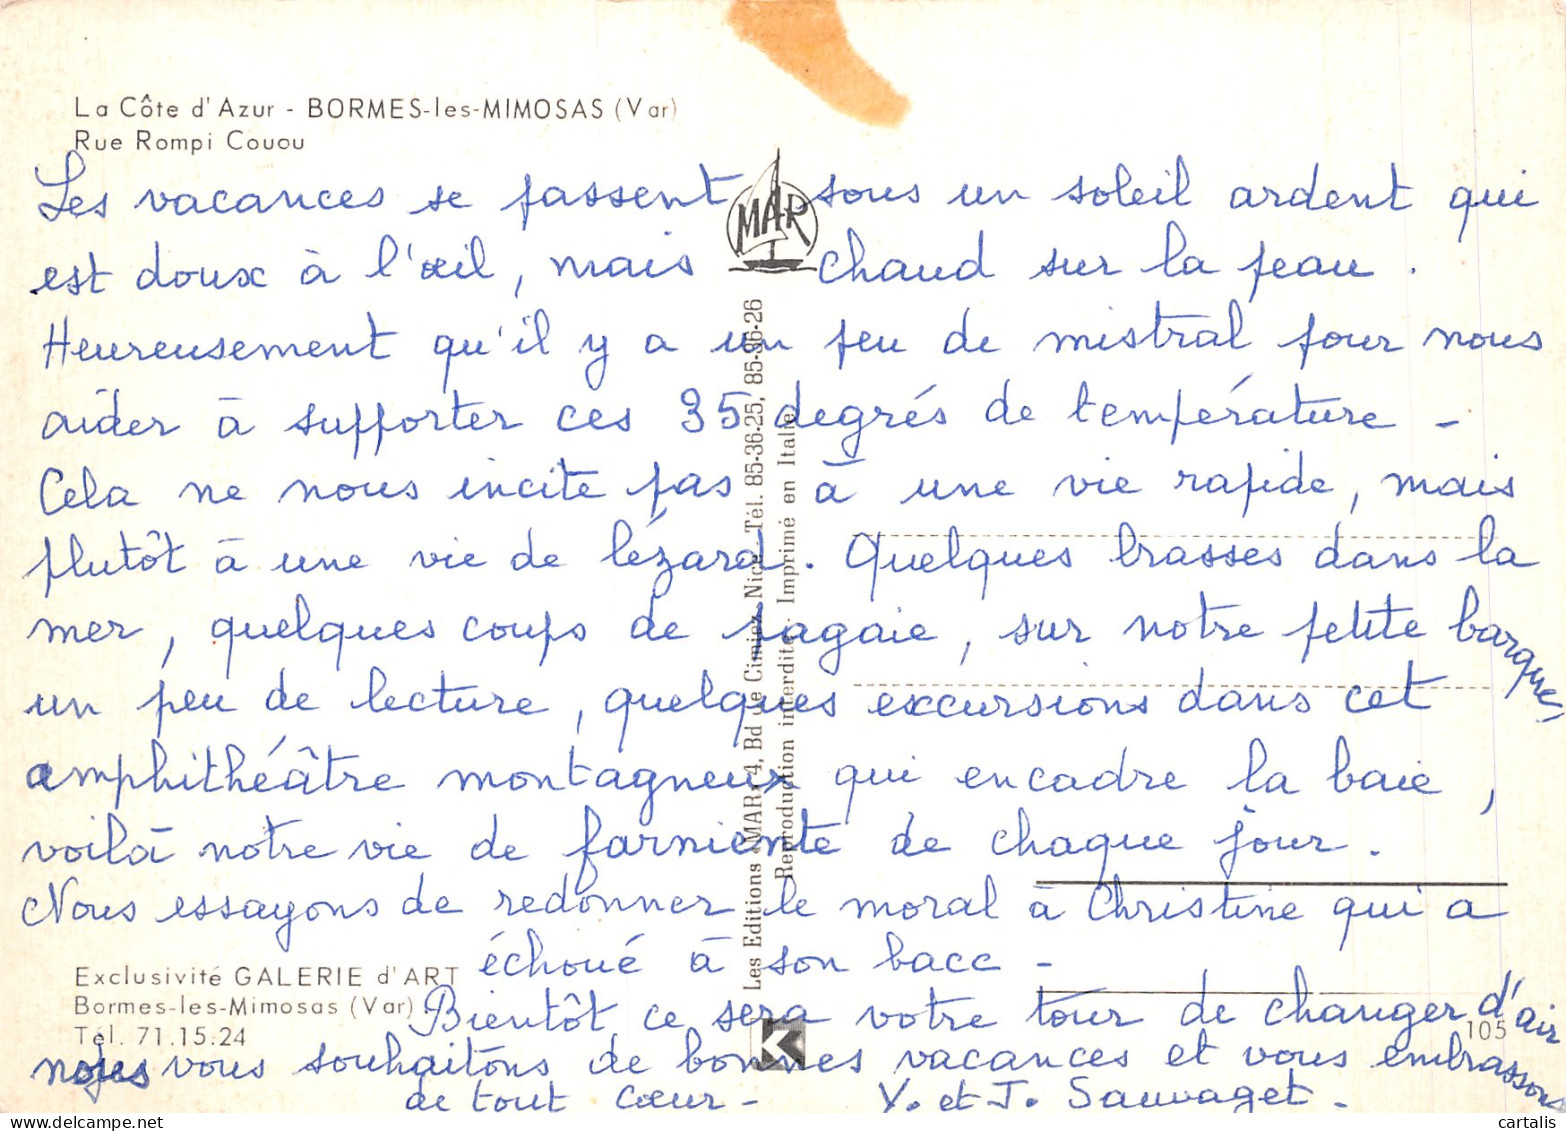 La Côte d'Azur - BORMES-les-MIMOSAS (Var)
Rue Rompi Couou
MAR
Les vacances se passent sous un soleil ardent qui
est doux à l'œil, mais chaud sur la peau.
Heureusement qu'il y a un peu de mistral pour nous
aider à supporter ces 35 degrés de température -
Cela ne nous incite pas à une vie rapide, mais
plutôt à une vie de lézard. Quelques brasses dans la
mer, quelques coups de pagaie, sur notre petite barques
un peu de lecture, quelques excursions dans cet
amphithéâtre montagneux qui encadre la baie,
voilà notre vie de farniente de chaque jour.
Nous essayons de redonner le moral à Christine qui a
échoué à son bacc -
Bientôt ce sera votre tour de changer d'air
nous vous souhaitons de bonnes vacances et vous embrassons
de tout cœur - Y. et J. Sauvaget.
Exclusivité GALERIE d'ART
Bormes-les-Mimosas (Var)
Tél. 71.15.24
Les Editions «MAR» 4, Bd de Cimiez, Nice - Tél. 85-36-25, 85-36-26
Reproduction interdite - Imprimé en Italie
K
105
www.delcampe.net
cartalis